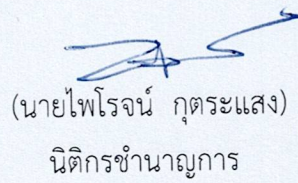 (นายไพโรจน์ กุตระแสง)
นิติกรชำนาญการ